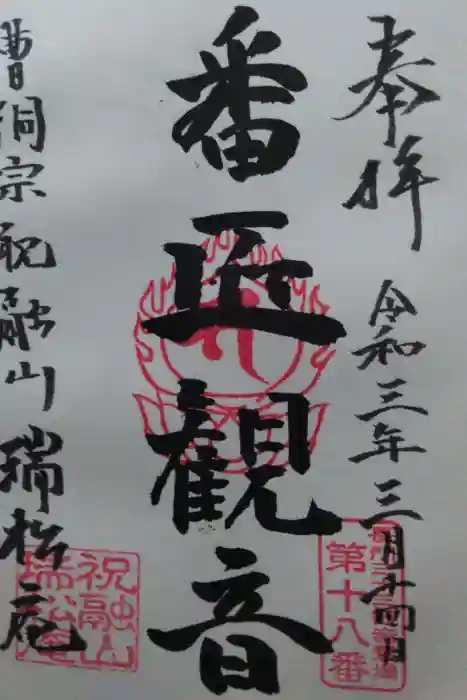 奉拝
令和三年三月十四日
第十八番
番匠観音
曹洞宗祝融山瑞松庵
祝融山
瑞松庵